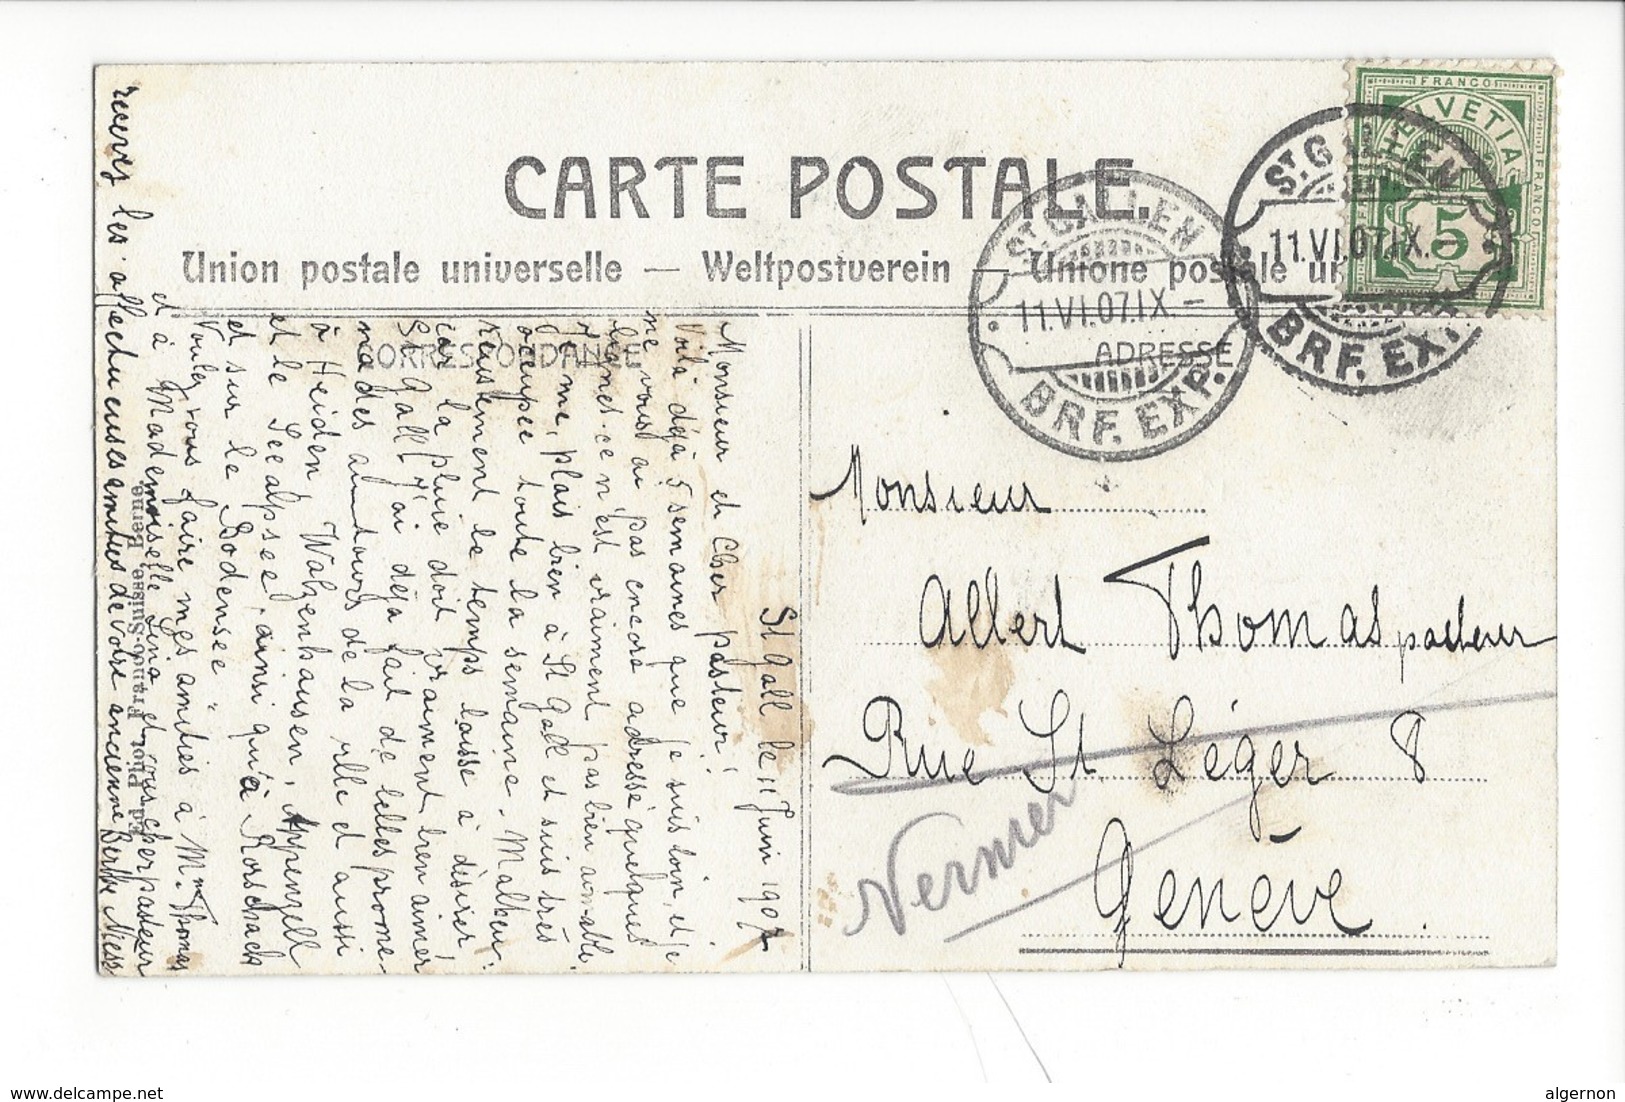 CARTE POSTALE.
Union postale universelle — Weltpostverein — Unione postale un
CORRESPONDANCE
ADRESSE
FRANCO
HELVETIA
FRANCO
5
ST. GALLEN
11.VI.07.IX.–
BRF. EXP.
ST. GALLEN
11.VI.07.IX.–
BRF. EXP.
Monsieur
Albert Thomas pasteur
Rue St. Léger 8
Genève
Vermer
St Gall le 11 Juin 1907
Monsieur et Cher pasteur!
Voilà déjà 5 semaines que je suis loin, et je
ne vous ai pas encore adressé quelques
lignes. ce n'est vraiment pas bien aimable.
Je me plais bien à St Gall et suis très
occupée toute la semaine. Malheu-
reusement le temps laisse à désirer!
car la pluie doit vraiment bien aimer
St Gall. J'ai déjà fait de belles prome-
nades aux alentours de la ville et aussi
à Heiden, Walzenhausen, Appenzell
et le Seealpsee, ainsi qu'à Rorschach
et sur le Bodensee.
Voulez vous faire mes amitiés à Mme Thomas
et à Mademoiselle Lina et vous cher pasteur
recevez les affectueuses amitiés de votre ancienne Berthe Niess
Ed. Phot. Franco-Suisse, Berne.
www.delcampe.net
algernon